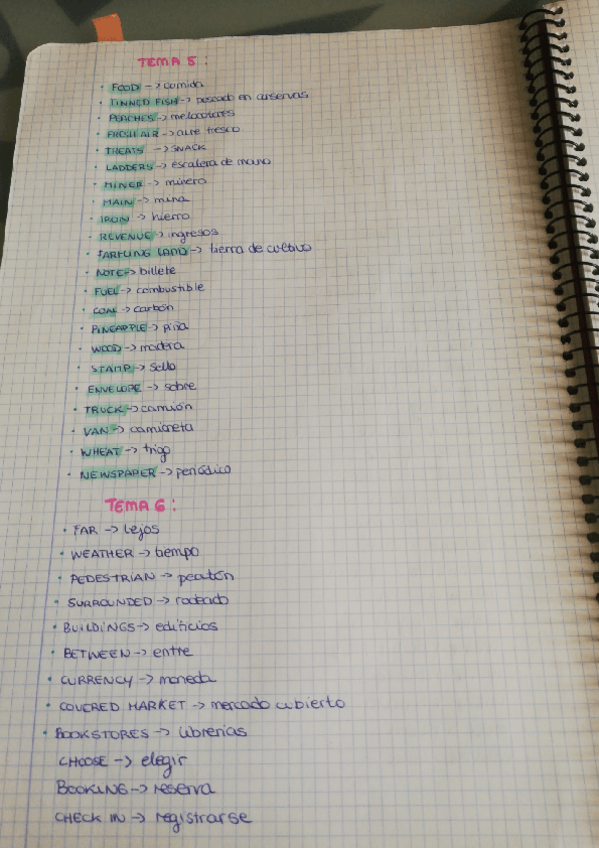 TEMA 5:
• FOOD -> comida
• TINNED FISH -> pescado en conservas
• PEACHES -> melocotones
• FRESH AIR -> aire fresco
• TREATS -> SNACK
• LADDERS -> escalera de mano
• MINER -> minero
• MAIN -> mina
• IRON -> hierro
• REVENUE -> ingresos
• FARMLING LAND -> tierra de cultivo
• NOTE -> billete
• FUEL -> combustible
• COAL -> carbón
• PINEAPPLE -> piña
• WOOD -> madera
• STAMP -> sello
• ENVELOPE -> sobre
• TRUCK -> camión
• VAN -> camioneta
• WHEAT -> trigo
• NEWSPAPER -> periódico
TEMA 6:
• FAR -> lejos
• WEATHER -> tiempo
• PEDESTRIAN -> peatón
• SURROUNDED -> rodeado
• BUILDINGS -> edificios
• BETWEEN -> entre
• CURRENCY -> moneda
• COVERED MARKET -> mercado cubierto
• BOOKSTORES -> librerías
CHOOSE -> elegir
BOOKING -> reserva
CHECK IN -> registrarse